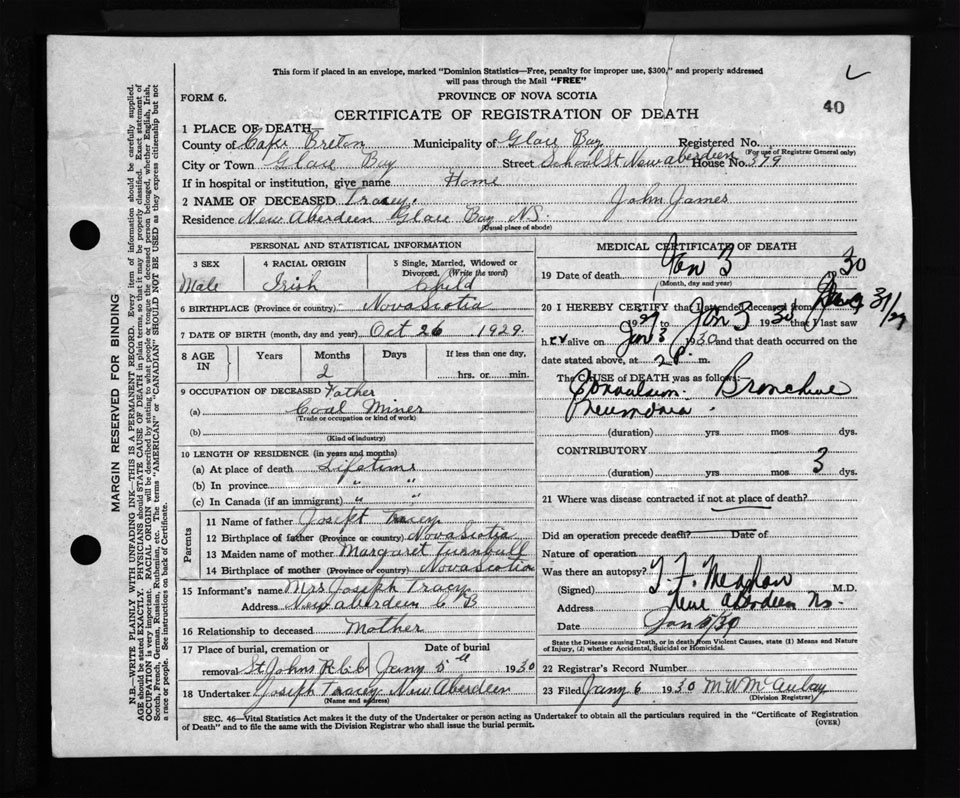 This form if placed in an envelope, marked "Dominion Statistics—Free, penalty for improper use, $300," and properly addressed
will pass through the Mail "FREE"
FORM 6.
PROVINCE OF NOVA SCOTIA
40
CERTIFICATE OF REGISTRATION OF DEATH
1 PLACE OF DEATH
County of Cape Breton Municipality of Glace Bay Registered No.
(For use of Registrar General only)
City or Town Glace Bay Street School St New aberdeen House No. 379
If in hospital or institution, give name Home
2 NAME OF DECEASED Tracey, John James
Residence New Aberdeen Glace Bay NS.
(Usual place of abode)
PERSONAL AND STATISTICAL INFORMATION
3 SEX 4 RACIAL ORIGIN 5 Single, Married, Widowed or
Divorced. (Write the word)
Male Irish Child
6 BIRTHPLACE (Province or country) Nova Scotia
7 DATE OF BIRTH (month, day and year) Oct 26 1929
8 AGE IN Years Months Days If less than one day,
2 hrs. or min.
9 OCCUPATION OF DECEASED Father
(a) Coal Miner
(Trade or occupation or kind of work)
(b)
(Kind of industry)
10 LENGTH OF RESIDENCE (in years and months)
(a) At place of death Lifetime
(b) In province " "
(c) In Canada (if an immigrant) " "
Parents
11 Name of father Joseph Tracey
12 Birthplace of father (Province or country) Nova Scotia
13 Maiden name of mother Margaret Turnbull
14 Birthplace of mother (Province or country) Nova Scotia
15 Informant's name Mrs Joseph Tracy
Address New aberdeen C B
16 Relationship to deceased Mother
17 Place of burial, cremation or Date of burial
removal St Johns R.C.C Jany 5th 1930
18 Undertaker Joseph Tracey New Aberdeen
(Name and address)
MEDICAL CERTIFICATE OF DEATH
19 Date of death Jan 3 30
(Month, day and year)
20 I HEREBY CERTIFY that I attended deceased from 31/29
to Jan 3 1930 that I last saw
h alive on Jan 3 1930 and that death occurred on the
date stated above, at 2 P. m.
The CAUSE of DEATH was as follows:
Convulsion. Bronchial
Pneumonia.
(duration) yrs mos dys.
CONTRIBUTORY
(duration) yrs mos 3 dys.
21 Where was disease contracted if not at place of death?
Did an operation precede death? Date of
Nature of operation
Was there an autopsy?
(Signed) T. F. Meahan M.D.
Address New Aberdeen Ns.
Date Jan /30
State the Disease causing Death, or in death from Violent Causes, state (1) Means and Nature
of Injury, (2) whether Accidental, Suicidal or Homicidal.
22 Registrar's Record Number
23 Filed Jany 6 1930 M W McAulay
(Division Registrar)
SEC. 46—Vital Statistics Act makes it the duty of the Undertaker or person acting as Undertaker to obtain all the particulars required in the "Certificate of Registration
of Death" and to file the same with the Division Registrar who shall issue the burial permit.
(OVER)
MARGIN RESERVED FOR BINDING
N.B.—WRITE PLAINLY WITH UNFADING INK—THIS IS A PERMANENT RECORD. Every item of information should be carefully supplied.
AGE should be stated EXACTLY. PHYSICIANS should STATE CAUSE OF DEATH in plain terms, so that it may be properly classified. Exact statement of
OCCUPATION is very important. RACIAL ORIGIN will be described by stating to what people or tongue the deceased person belonged, whether English, Irish,
Scotch, French, German, Russian, Ruthenian, etc. The terms "AMERICAN" or "CANADIAN" SHOULD NOT BE USED as they express citizenship but not
a race or people. See instructions on back of Certificate.